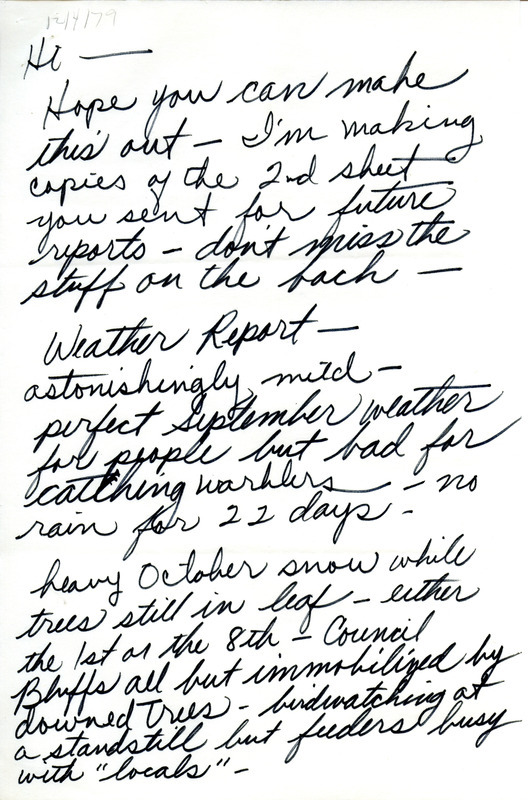 12/4/79
Hi —
Hope you can make
this out — I'm making
copies of the 2nd sheet
you sent for future
reports — don't miss the
stuff on the back —
Weather Report —
astonishingly mild —
perfect September weather
for people but bad for
catching warblers — no
rain for 22 days -
heavy October snow while
trees still in leaf — either
the 1st or the 8th — Council
Bluffs all but immobilized by
downed trees - birdwatching at
a standstill but feeders busy
with "locals" -